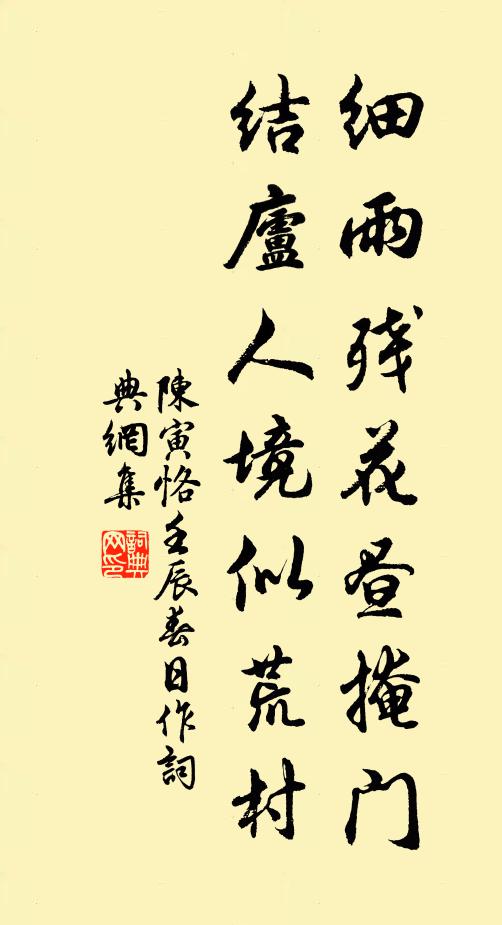 细雨残花昼掩门
结廬人境似荒村
陳寅恪壬辰春日作詞
典網集
詞典
网印